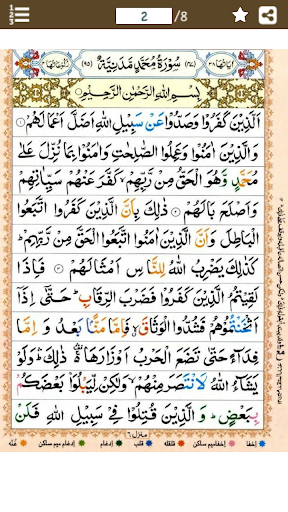 2 /8
سُوْرَةُ مُحَمَّدٍ مَّدَنِيَّةٌ
بِسْمِ اللّٰهِ الرَّحْمٰنِ الرَّحِيْمِ
اَلَّذِيْنَ كَفَرُوْا وَصَدُّوْا عَنْ سَبِيْلِ اللّٰهِ اَضَلَّ اَعْمَالَهُمْ
وَالَّذِيْنَ اٰمَنُوْا وَعَمِلُوا الصّٰلِحٰتِ وَاٰمَنُوْا بِمَا نُزِّلَ عَلٰى
مُحَمَّدٍ وَّهُوَ الْحَقُّ مِنْ رَّبِّهِمْ ۙ كَفَّرَ عَنْهُمْ سَيِّاٰتِهِمْ
وَاَصْلَحَ بَالَهُمْ ذٰلِكَ بِاَنَّ الَّذِيْنَ كَفَرُوا اتَّبَعُوا
الْبَاطِلَ وَاَنَّ الَّذِيْنَ اٰمَنُوا اتَّبَعُوا الْحَقَّ مِنْ رَّبِّهِمْ ؕ
كَذٰلِكَ يَضْرِبُ اللّٰهُ لِلنَّاسِ اَمْثَالَهُمْ فَاِذَا
لَقِيْتُمُ الَّذِيْنَ كَفَرُوْا فَضَرْبَ الرِّقَابِ ؕ حَتّٰۤى اِذَاۤ
اَثْخَنْتُمُوْهُمْ فَشُدُّوا الْوَثَاقَ ۙ فَاِمَّا مَنًّۢا بَعْدُ وَ اِمَّا
فِدَآءً حَتّٰى تَضَعَ الْحَرْبُ اَوْزَارَهَا ۛۚ ذٰلِكَ ۛؕ وَلَوْ
يَشَآءُ اللّٰهُ لَانْتَصَرَ مِنْهُمْ وَلٰكِنْ لِّيَبْلُوَا۟ بَعْضَكُمْ
بِبَعْضٍ ؕ وَ الَّذِيْنَ قُتِلُوْا فِيْ سَبِيْلِ اللّٰهِ فَلَنْ
منزل ٦
اخفا اخفا میم ساکن قلقله قلب ادغام ادغام میم ساکن غنّه